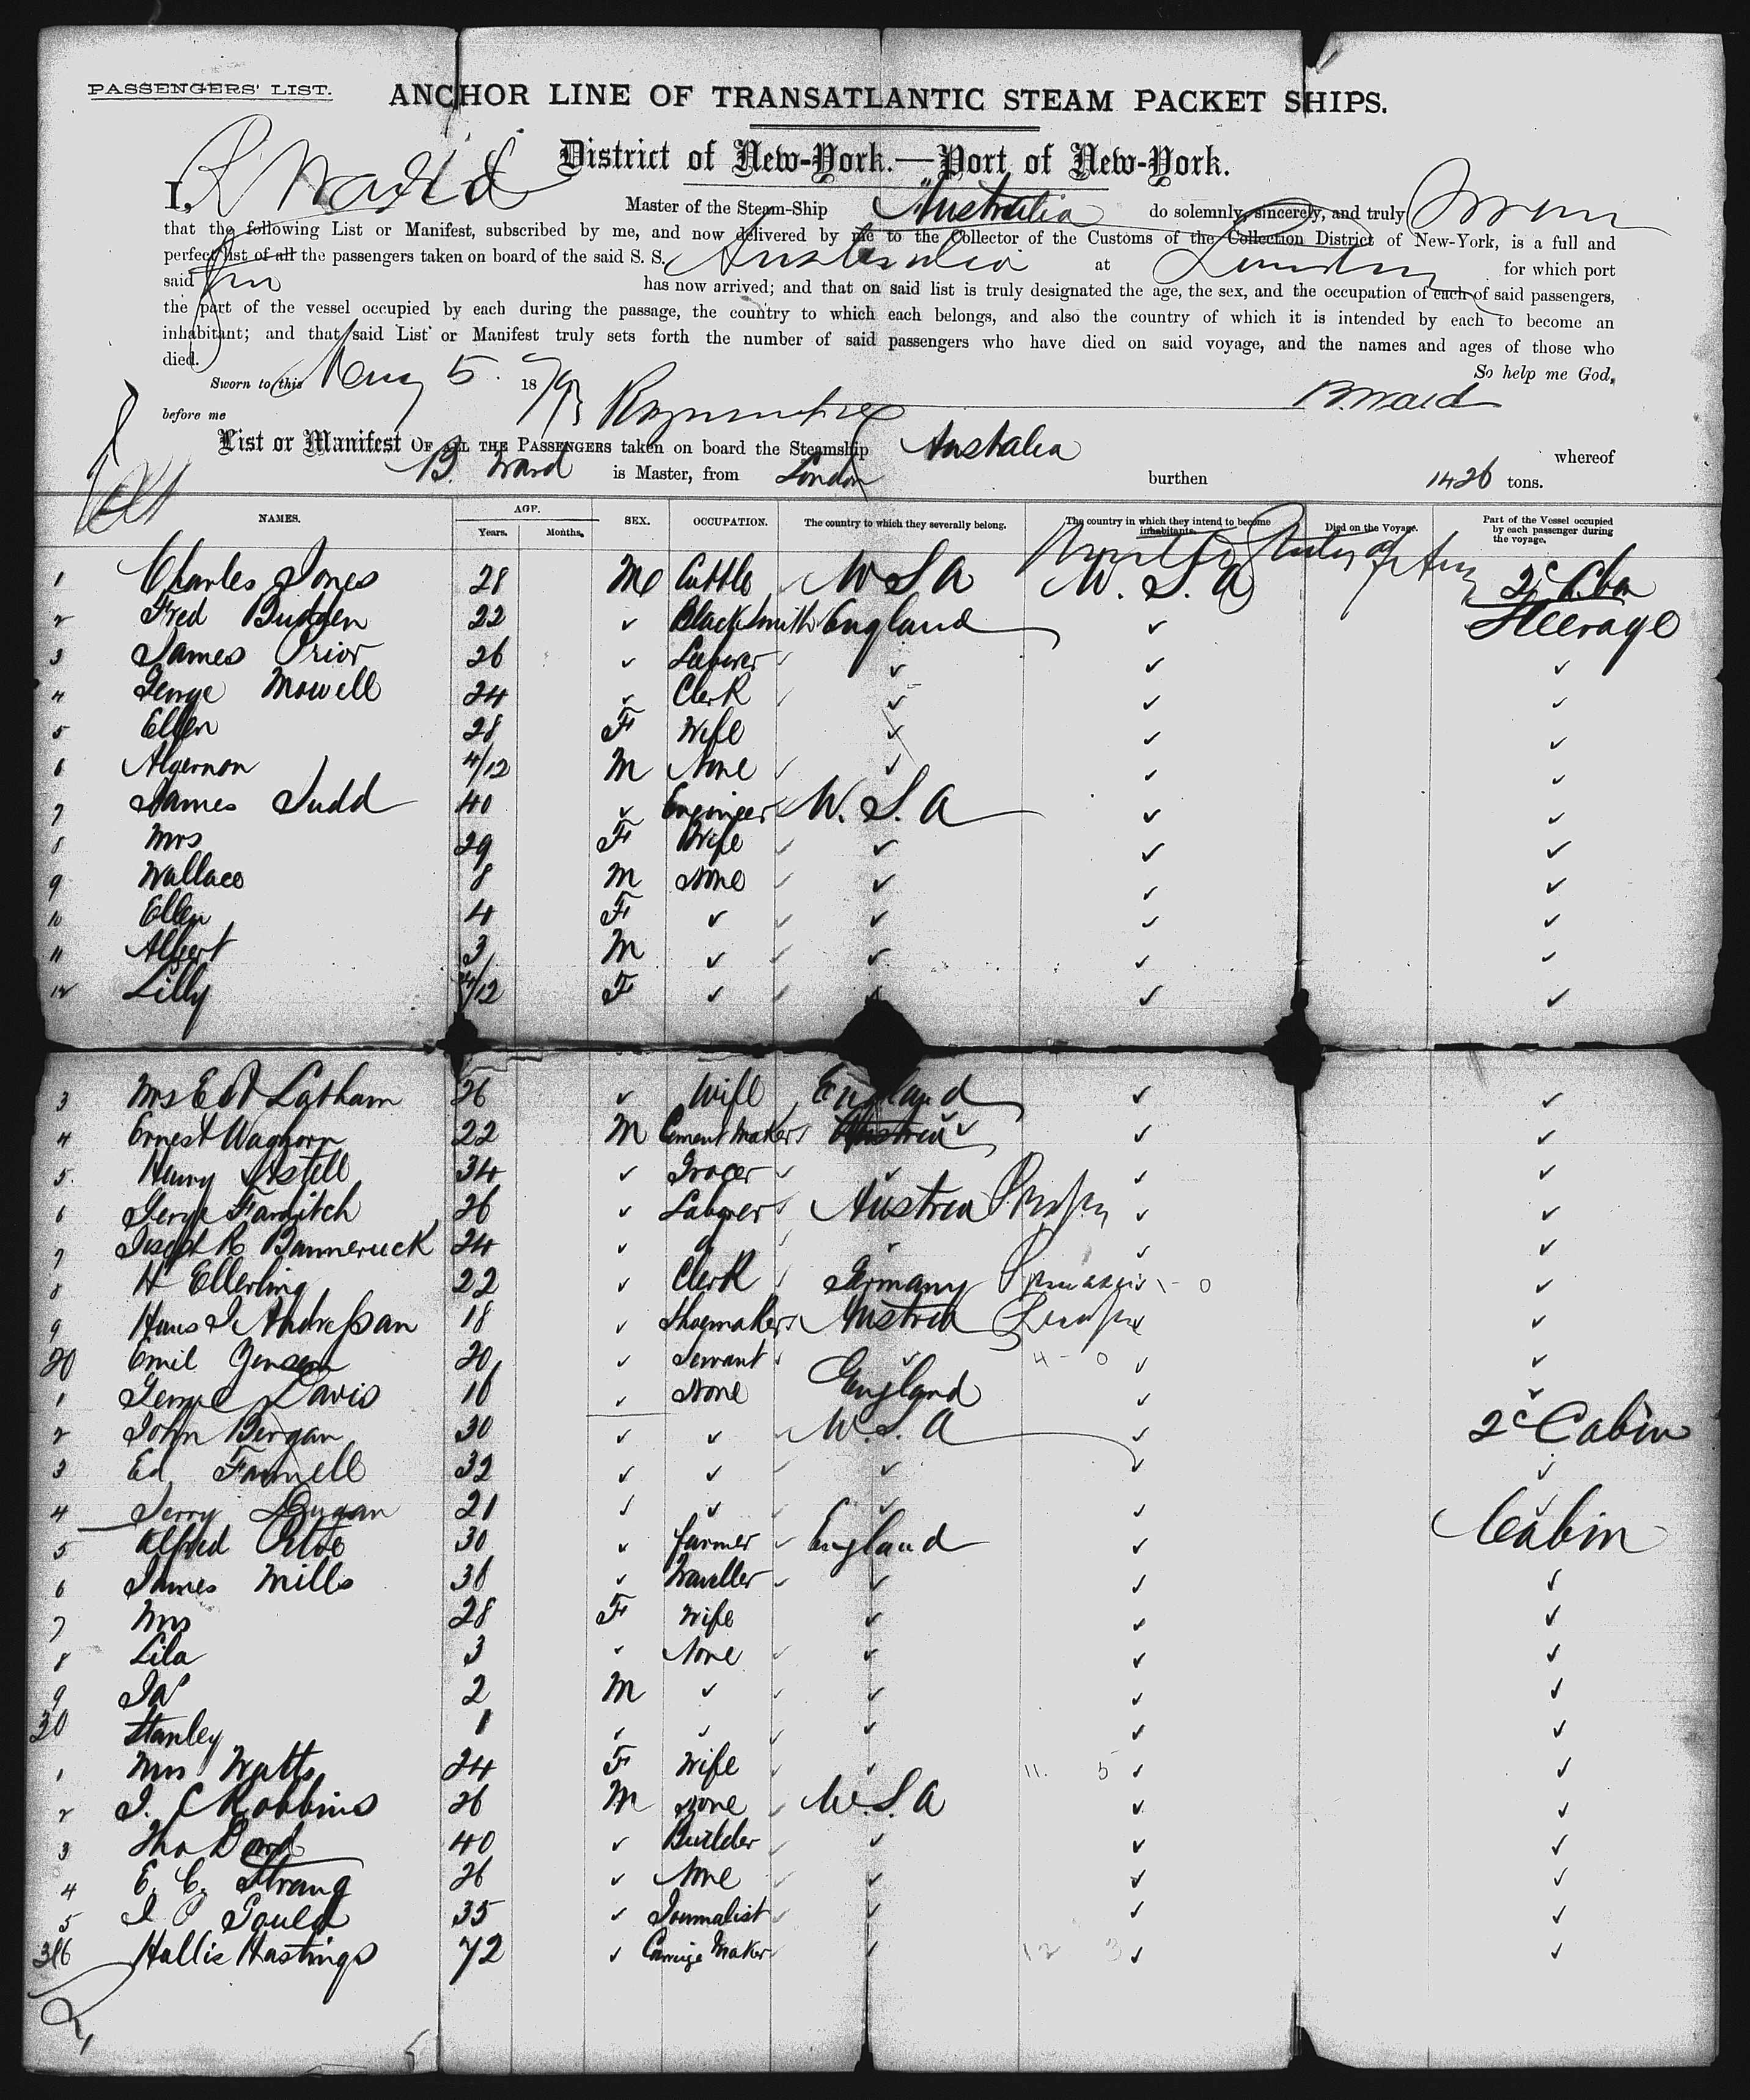 PASSENGERS' LIST.
ANCHOR LINE OF TRANSATLANTIC STEAM PACKET SHIPS.
District of New-York.—Port of New-York.
I, Master of the Steam-Ship Australia do solemnly, sincerely, and truly
that the following List or Manifest, subscribed by me, and now delivered by me to the Collector of the Customs of the Collection District of New-York, is a full and
perfect list of all the passengers taken on board of the said S. S. Australia at London for which port
said has now arrived; and that on said list is truly designated the age, the sex, and the occupation of each of said passengers,
the part of the vessel occupied by each during the passage, the country to which each belongs, and also the country of which it is intended by each to become an
inhabitant; and that said List or Manifest truly sets forth the number of said passengers who have died on said voyage, and the names and ages of those who
died.
So help me God,
Sworn to this Aug 5. 1879
before me
List or Manifest OF ALL THE PASSENGERS taken on board the Steamship Australia whereof
B. Ward is Master, from London burthen 1426 tons.
NAMES. AGE. Years. Months. SEX. OCCUPATION. The country to which they severally belong. The country in which they intend to become inhabitants. Died on the Voyage. Part of the Vessel occupied by each passenger during the voyage.
1 Charles Jones 28 M Cattle ✓ U S A U. S. A 2c Cbn
2 Fred Budgen 22 ✓ Blacksmith England ✓ Steerage
3 James Prior 26 ✓ Laborer ✓ ✓ ✓ ✓
4 George Mowell 24 ✓ Clerk ✓ ✓ ✓ ✓
5 Ellen 28 F Wife ✓ ✓ ✓
6 Algernon 4/12 M None ✓ ✓ ✓ ✓
7 James Judd 40 ✓ Engineer U. S. A ✓ ✓
8 Mrs 29 F Wife ✓ ✓ ✓ ✓
9 Wallace 8 M None ✓ ✓ ✓ ✓
10 Ellen 4 F ✓ ✓ ✓ ✓ ✓
11 Albert 3 M ✓ ✓ ✓ ✓ ✓
12 Lilly /12 F ✓ ✓ ✓ ✓ ✓
3 Mrs E A Latham 26 ✓ Wife England ✓ ✓
4 Ernest Waghorn 22 M Cement Maker ✓ ✓ ✓
5. Henry 34 ✓ Grocer ✓ ✓ ✓ ✓
6 George 26 ✓ Laborer Austria ✓ ✓
7 Joseph R 24 ✓ ✓ ✓ ✓ ✓
8 H Ellerling 22 ✓ Clerk Germany ✓ ✓
9 Hans J 18 ✓ Shoemaker Austria ✓
20 Emil Jensen 20 ✓ Servant ✓ ✓ 4 - 0 ✓ ✓
1 George Davis 16 ✓ None England ✓ ✓
2 John Bergan 30 ✓ ✓ U. S. A ✓ 2c Cabin
3 Ed Farnell 32 ✓ ✓ ✓ ✓ ✓ ✓
4 Jerry Dugan 21 ✓ ✓ ✓ ✓ ✓ ✓
5 Alfred 30 ✓ farmer ✓ England ✓ Cabin
6 James Mills 36 ✓ Traveller ✓ ✓ ✓ ✓
7 Mrs 28 F Wife ✓ ✓ ✓
8 Lila 3 ✓ None ✓ ✓ ✓ ✓
9 Jas 2 M ✓ ✓ ✓ ✓ ✓
30 Stanley 1 ✓ ✓ ✓ ✓ ✓ ✓
1 Mrs Watts 24 F Wife ✓ ✓ 11. 5 ✓ ✓
2 J. C Robbins 26 M None ✓ U. S. A ✓ ✓
3 Tho 40 ✓ Builder ✓ ✓ ✓ ✓
4 E. C. Strang 26 ✓ None ✓ ✓ ✓ ✓
5 J Gould 35 ✓ Journalist ✓ ✓ ✓ ✓
36 Hallis Hastings 72 ✓ Carriage Maker ✓ ✓ 12 3 ✓ ✓